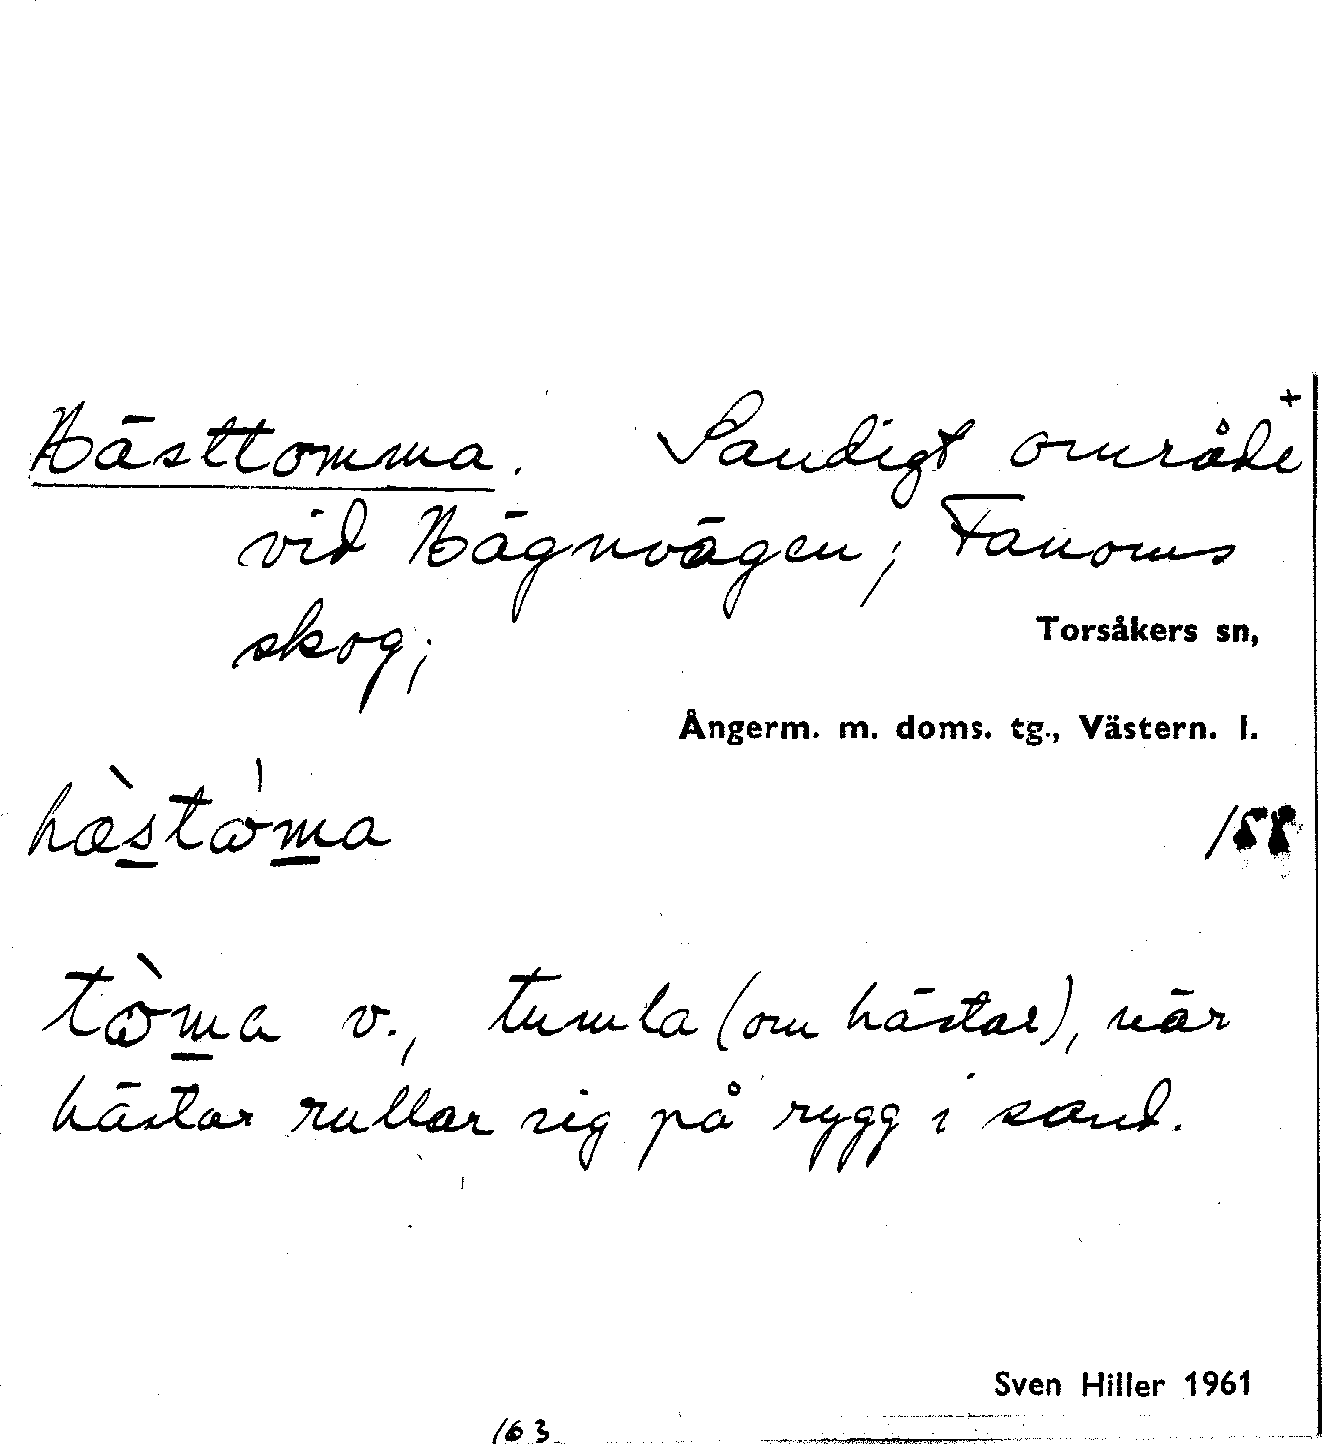 +
Hästtomma. Sandigt område
vid Hägnvägen; Fanoms
skog; Torsåkers sn,
Ångerm. m. doms. tg., Västern. l.
hæ̀stɷ̀ma
tɷ̀ma v., tumla (om hästar), när
hästar rullar sig på rygg i sand.
Sven Hiller 1961
163